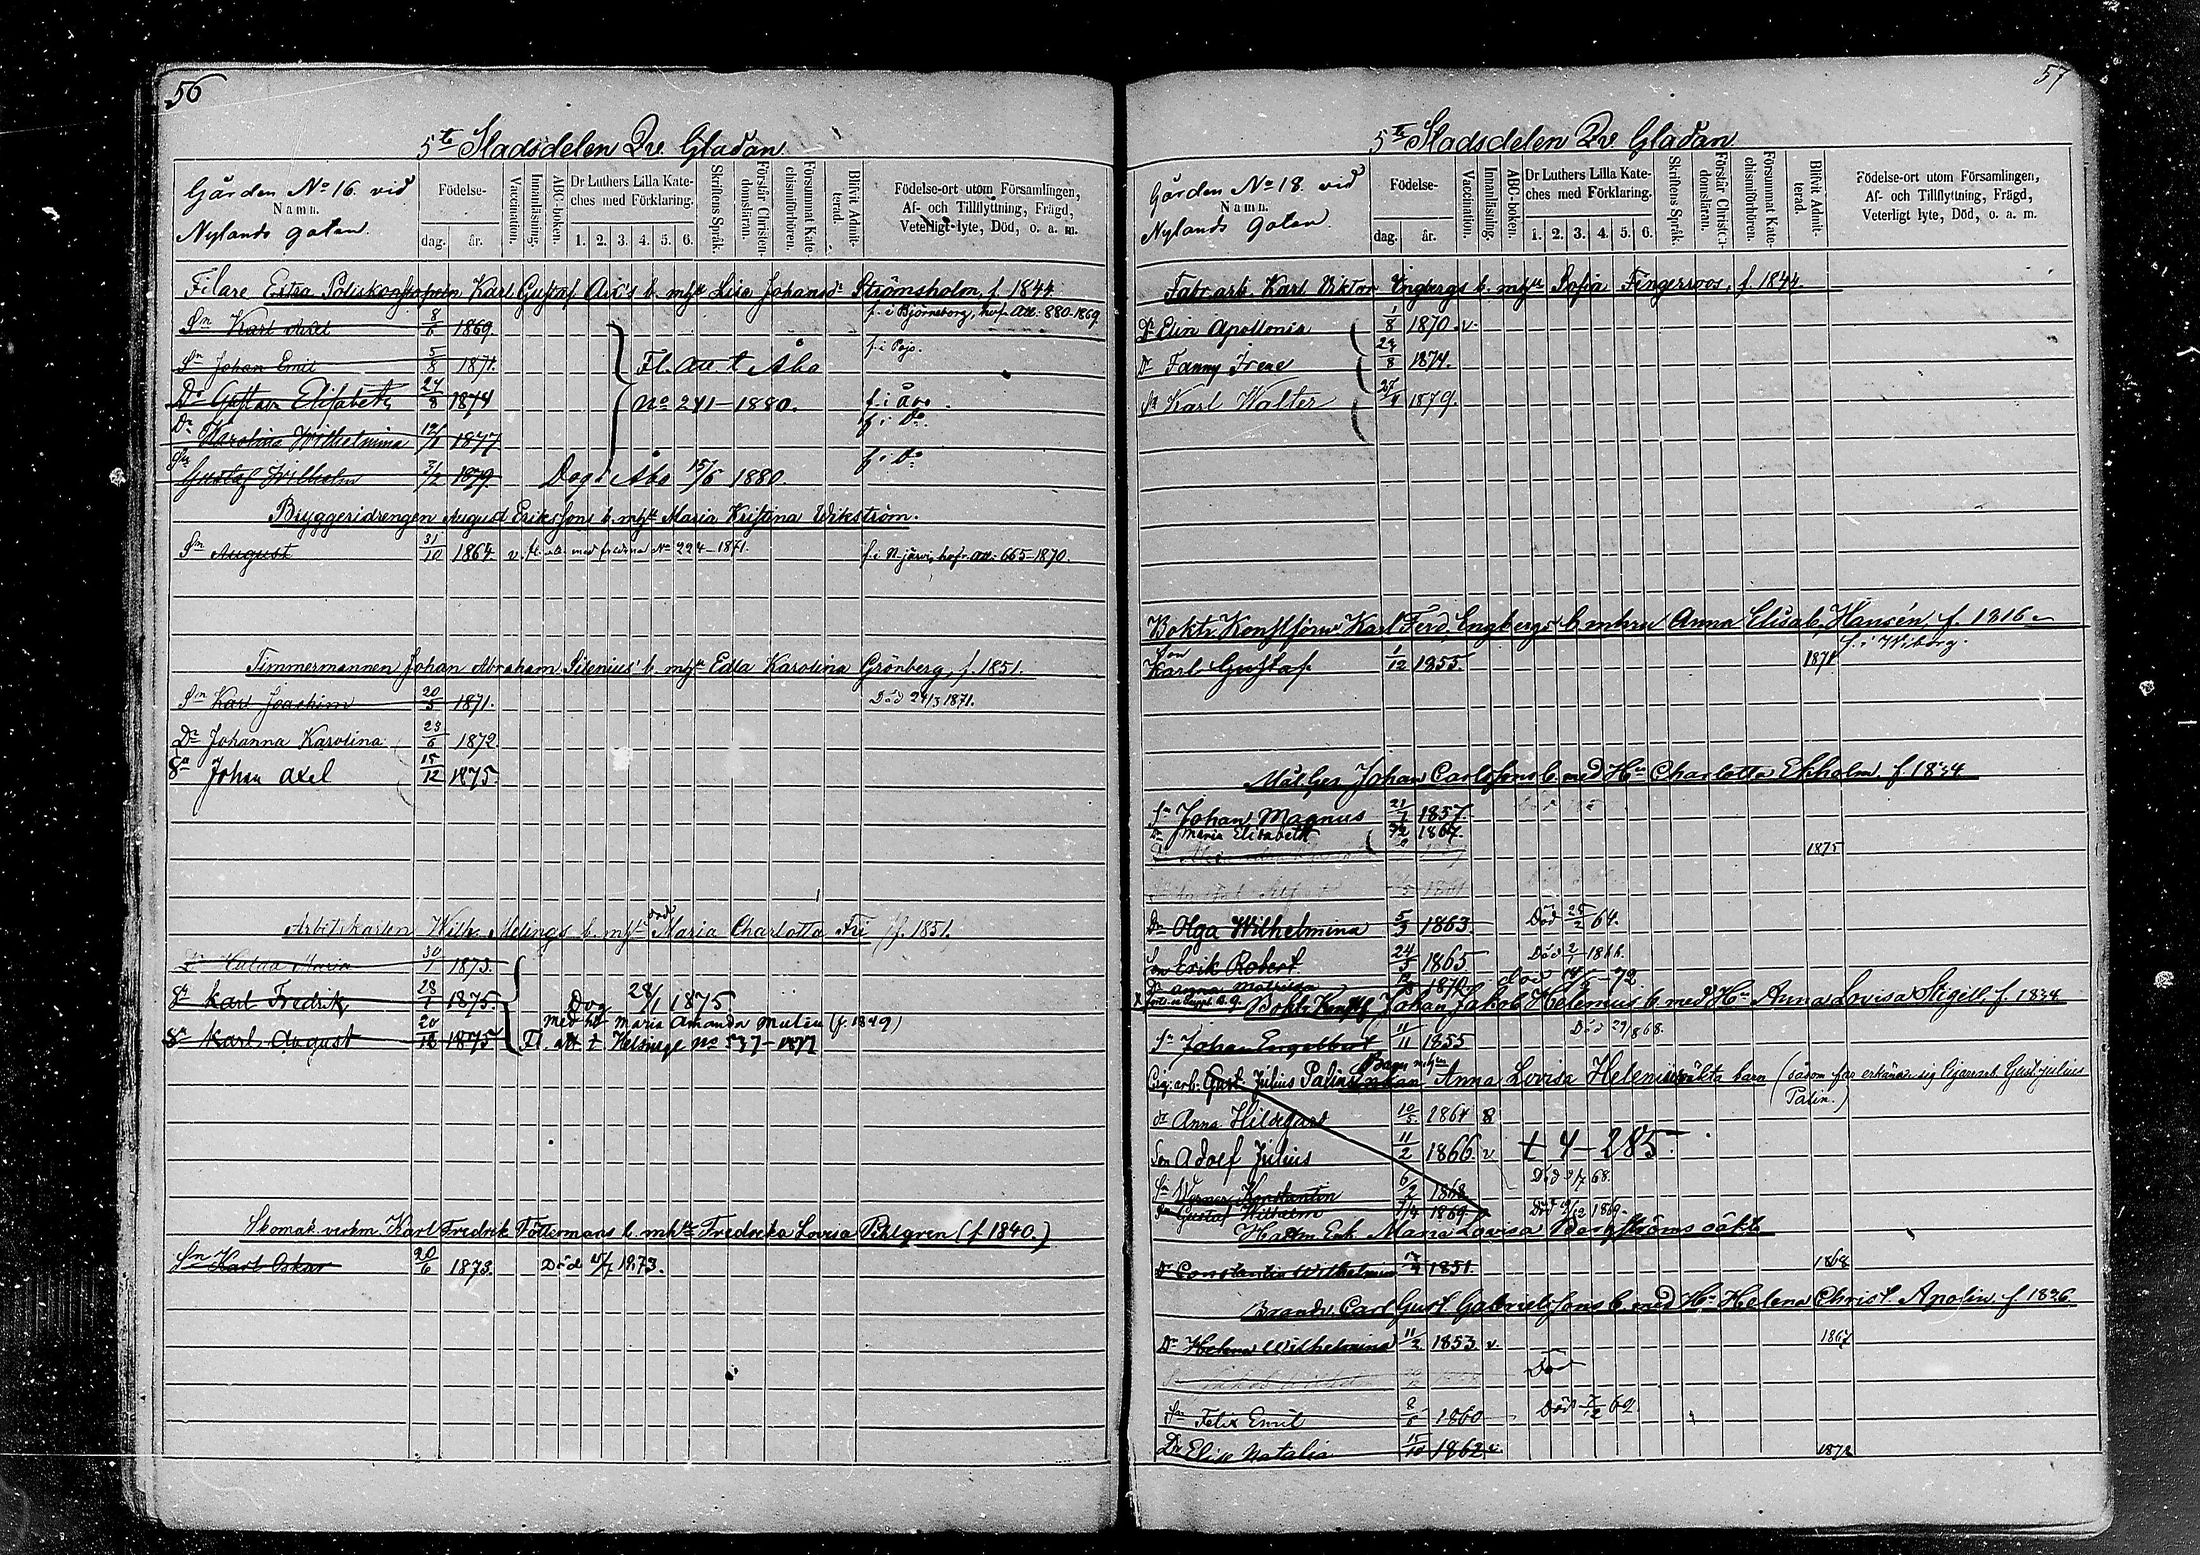 56
5te Stadsdelen Qv. Gladan
Gården No 16. vid
Namn.
Nylands gatan.
Födelse-
dag. år.
Vaccination.
Innanläsning.
ABC-boken.
Dr Luthers Lilla Kate-
ches med Förklaring.
1. 2. 3. 4. 5. 6.
Skriftens Språk.
Förstår Christen-
domsläran.
Försummat Kate-
chismiförhören.
Blifvit Admit-
terad.
Födelse-ort utom Församlingen,
Af- och Tillflyttning, Frägd,
Veterligt lyte, Död, o. a. m.
Filare Extra Poliskonstapeln Karl Gustaf b. m. h. Lisa Johansdr Strömsholm, f. 1844
Sn Karl Axel 8/6 1869 f. i Björneborg, att. 880-1869
Sn Johan Emil 5/8 1871. Fl. att. t. Åbo f. i Pojo.
Dr Gustava Elisabeth 27/8 1874 No 241-1880. f. i Åbo
Dr Karolina Wilhelmina 1877 f. i Do.
Sn Gustaf Wilhelm 1879 Dog i Åbo 15/6 1880. f. i Do
Bryggeridrengen August Erikssons b. m. h. Maria Kristina Wikström.
Sn August 31/10 1864 v. fl. med No 224-1871. att. 665-1870.
Timmermannen Johan Abraham Silenius' b. m. h. Edla Karolina Grönberg, f. 1851.
Sn Karl Joachim 20/5 1871. Död 1871.
Dr Johanna Karolina 23/6 1872.
Sn Johan Axel 15/12 1875.
Arbetskarlen Wilh. Melings b. m. h. död Maria Charlotta Fri f. 1851.
Dr Hulda Maria 30/1 1873.
Sn Karl Fredrik 28/1 1875. Dog 28/1 1875
med h. Maria Amanda (f. 1849)
Sn Karl August 20/12 1875 Fl. att. t. No 537-1877
Skomak. Karl Fredrik b. m. h. Fredrika Lovisa Pihlgren (f. 1840.)
Sn Karl Oskar 20/6 1873. Död 1873.
57
5te Stadsdelen Qv. Gladan
Gården No 18. vid
Namn.
Nylands Gatan.
Födelse-
dag. år.
Vaccination.
Innanläsning.
ABC-boken.
Dr Luthers Lilla Kate-
ches med Förklaring.
1. 2. 3. 4. 5. 6.
Skriftens Språk.
Förstår Christen-
domsläran.
Försummat Kate-
chismiförhören.
Blifvit Admit-
terad.
Födelse-ort utom Församlingen,
Af- och Tillflyttning, Frägd,
Veterligt lyte, Död, o. a. m.
Fabr. arb. Karl Viktor Engbergs b. m. h. Sofia Fingerroos, f. 1844
Dr Elin Apollonia 1/8 1870. v.
Dr Fanny Irene 23/8 1874.
Sn Karl Walter 1879.
Boktr. Konstförv. Karl Ferd. Engbergs b. m. hru Anna Elisab. Hansén f. 1816
Son Karl Gustaf 1/12 1855. 1871 f. i Wiborg.
Johan Carlssons b. med Hu Charlotta Ekholm f. 1834
Sn Johan Magnus 21/1 1857.
Dr Maria Elisabeth 1867.
1875
1861
Dr Olga Wilhelmina 5/3 1863. Död 25/2 64.
Sn Erik Robert 24/5 1865 Död 2/1 1866.
Dr Agna Mathilda 1870 död 72
Boktr. Konstf. Johan Jakob Helenius b. med Hu Anna Lovisa Stigell, f. 1834
Sn Johan Engelbert 11/11 1855 Död 29/8 68.
Cig. arb. Gust. Julius Palins Anna Lovisa Helenius oäkta barn (såsom far erkänner sig Cigarrarb. Gust. Julius
Palin.)
Dr Anna Hildegard 10/5 1864
Son Adolf Julius 11/2 1866. v t 4-285.
Sn Verner Konstantin 6/2 1868 Död 68.
Sn Gustaf Wilhelm 1869 Död 1869.
Enk. Maria Lovisa Bergströms oäkt.
Dr Constantia Wilhelmina 1851. 1868
Brandv. Carl Gust. Gabrielssons b. med Hu Helena Christ. Apolin f. 1826
Dr Helena Wilhelmina 11/2 1853. v. 1867
Död
Sn Felix Emil 8/6 1860 Död 62
Dr Elise Natalia 15/10 1862 v. 1872